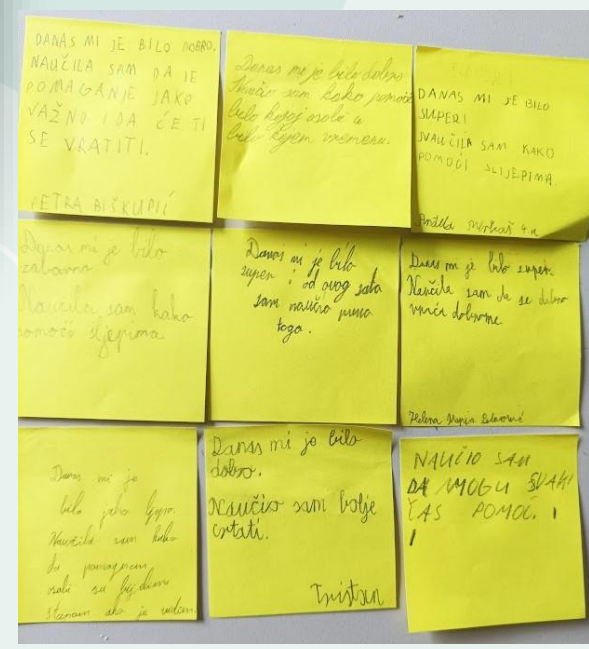 DANAS MI JE BILO DOBRO.
NAUČILA SAM DA JE
POMAGANJE JAKO
VAŽNO I DA ĆE TI
SE VRATITI.
PETRA BISKUPIĆ
Danas mi je bilo dobro
sam kako pomoći
bilo kojoj osobi u
bilo kojem vremenu.
DANAS MI JE BILO
SUPER!
NAUČILA SAM KAKO
POMOĆI SLIJEPIMA.
4.a
Danas mi je bilo
zabavno.
Naučila sam kako
pomoći sljepima.
Danas mi je bilo
super i od ovog sata
sam naučio puno
toga.
Danas mi je bilo super.
Naučila sam da se dobro
vraća dobrome.
Helena Marija
Danas mi je
bilo jako lijepo.
Naučila sam kako
da pomognem
osobi sa bijelim
štapom ako je vidim.
Danas mi je bilo
dobro.
Naučio sam bolje
crtati.
Tristan
NAUČIO SAM
DA MOGU SVAKI
ČAS POMOĆ. !
!